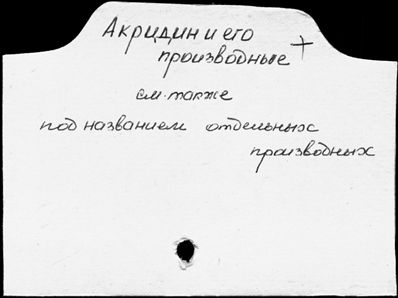 Акридин и его +
производные
см. также
под названием отдельных
производных